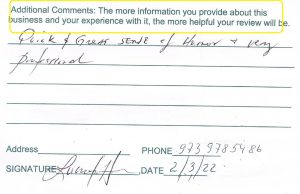 Additional Comments: The more information you provide about this
business and your experience with it, the more helpful your review will be.
Quick & Great sense of Humor & very
professional
Address
PHONE 9739785486
SIGNATURE DATE 2/3/22